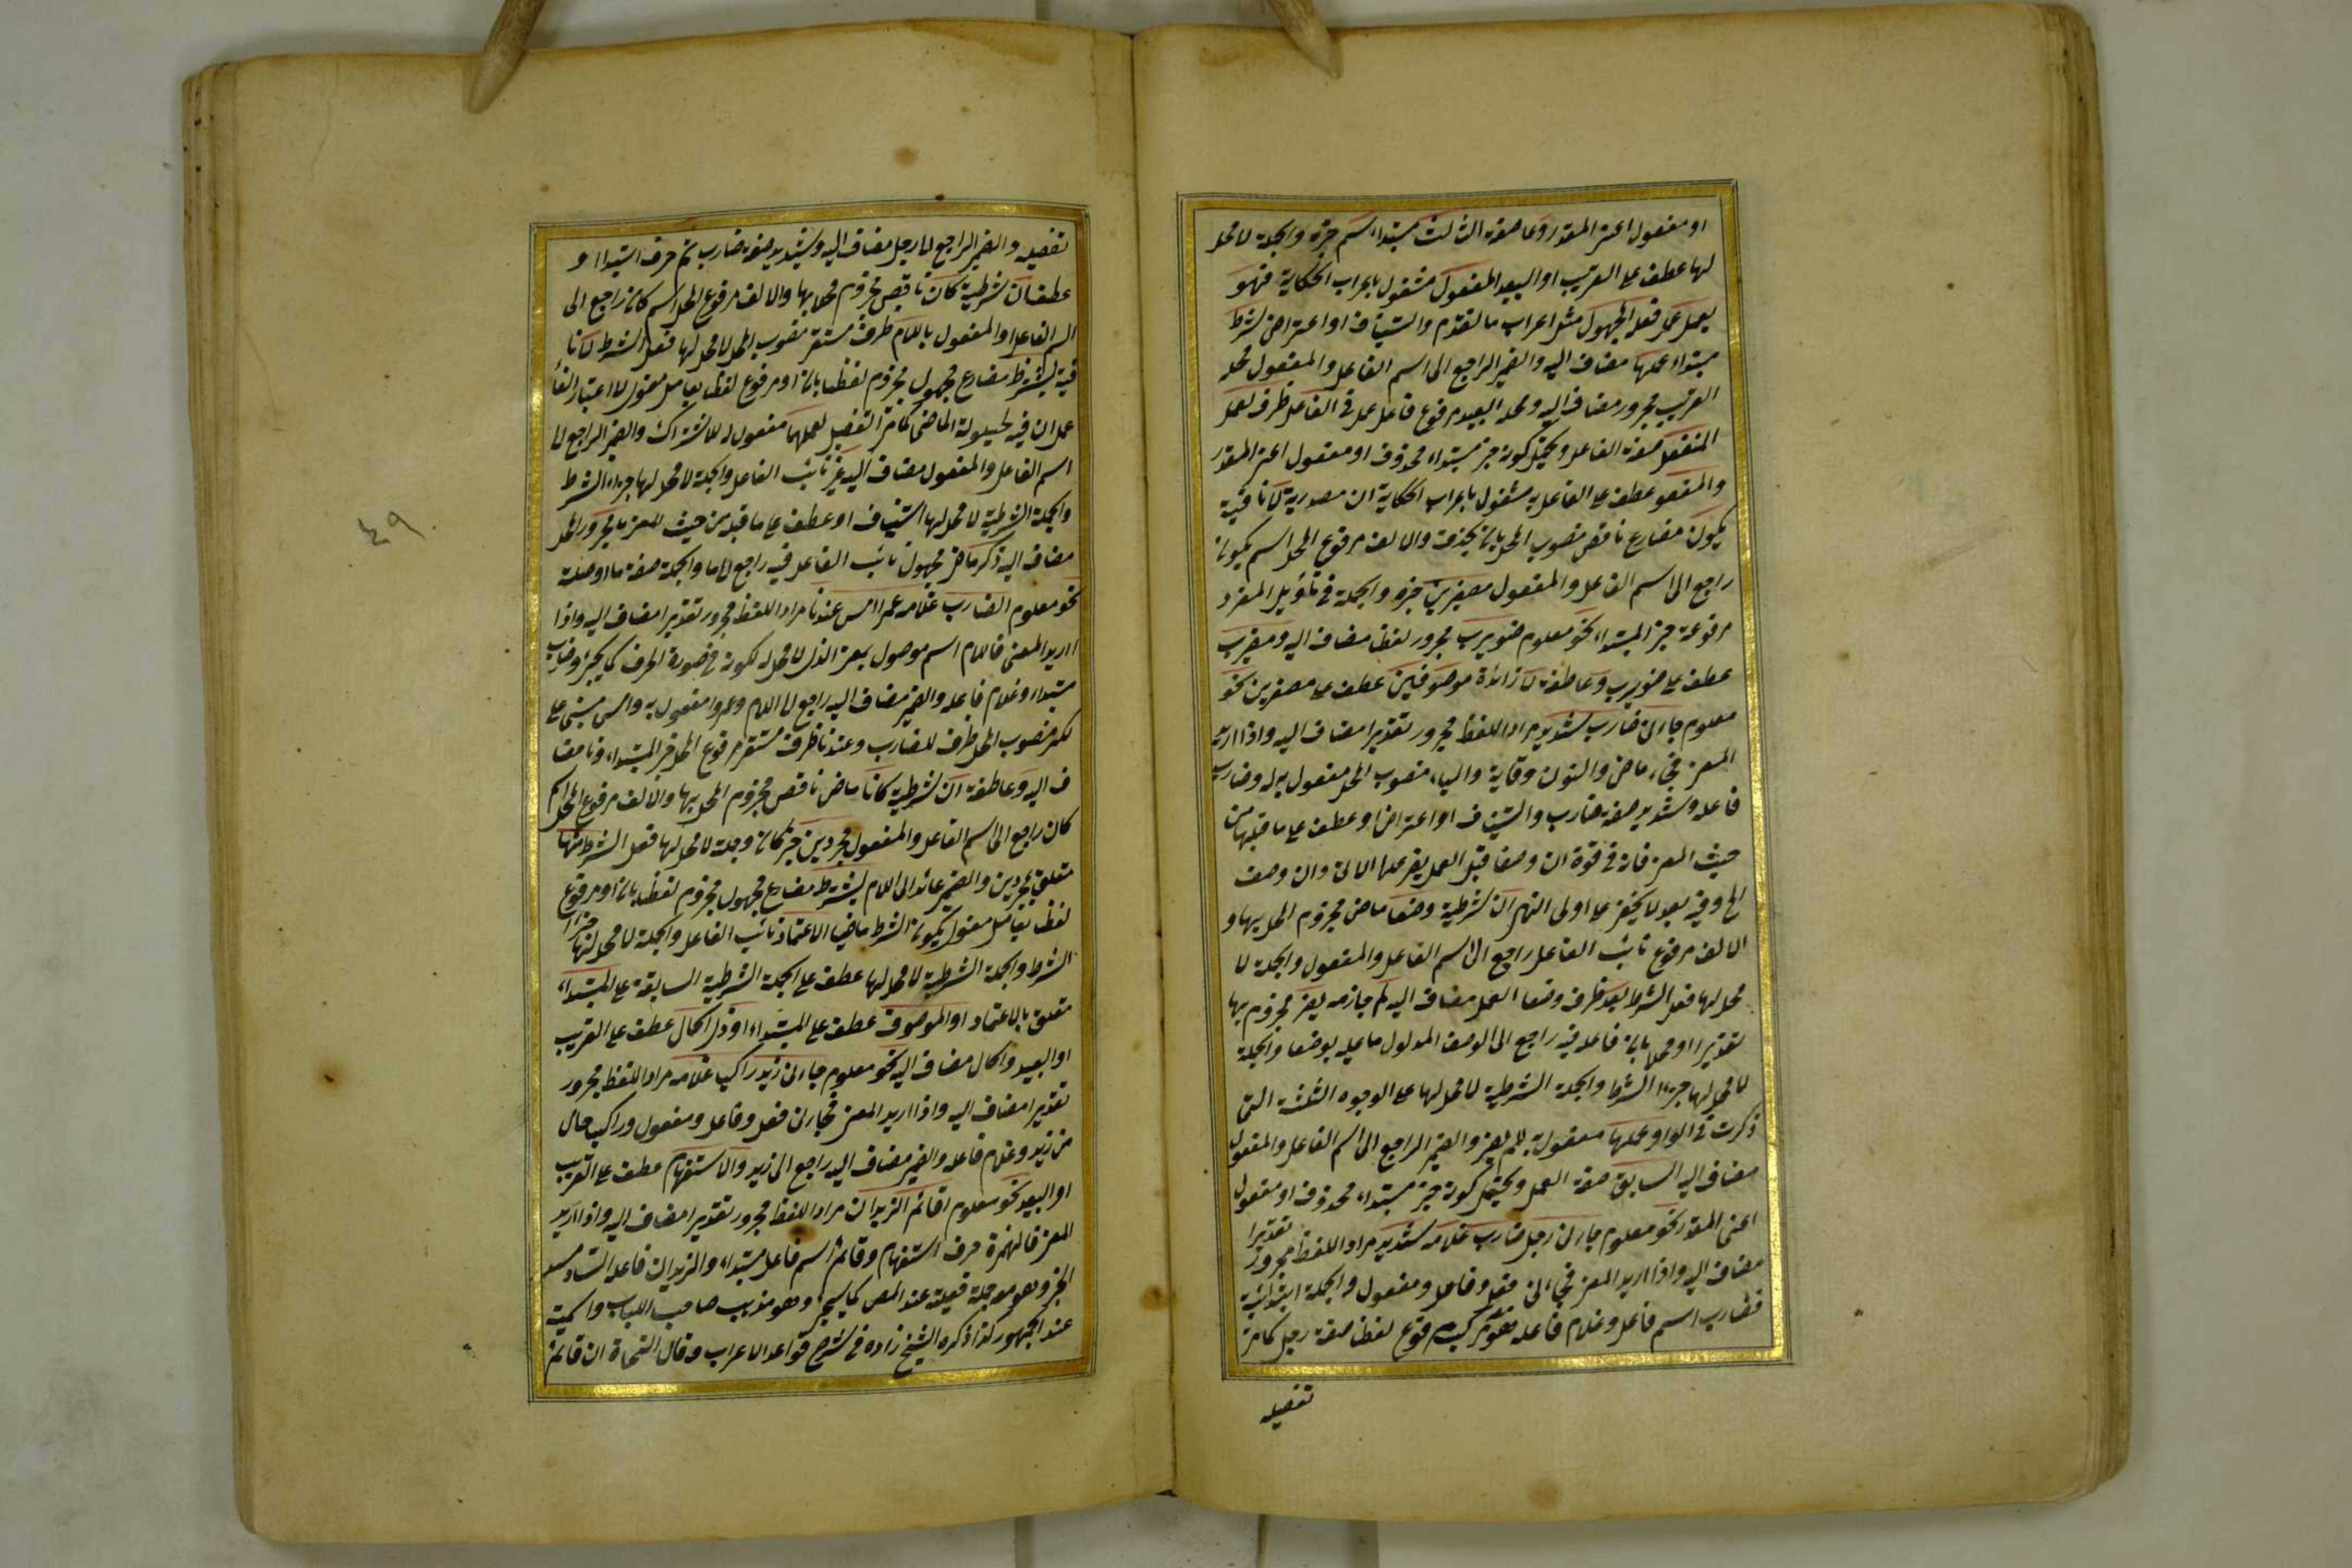 او مفعول اعنى المقدر وعا صفة الثالث مبتداء اسم خبره والجملة لا محل
لها عطف على القريب او البعيد المفعول مشغول باعراب الحكاية فهو
يعمل عمل فعله المجهول مثل اعراب ما تقدم واستيناف او اعتراض شرط
مبتداء عملها مضاف اليه والضمير الراجع الى اسم الفاعل والمفعول محله
القريب مجرور مضاف اليه ومحله البعيد مرفوع فاعل عمل فى الفاعل ظرف لعمل
المنفصل صفة الفاعل ويحتمل كونه خبر مبتداء محذوف او مفعول اعنى المقدر
والمفعول عطف على الفاعل به مشغول باعراب الحكاية ان مصدرية لا نافية
يكون مضارع ناقص منصوب المحل بان بحذف والالف مرفوع المحل اسم يكونا
راجع الى اسم الفاعل والمفعول مصغرين خبره والجملة فى تأويل المفرد
مرفوعة خبر المبتداء نحو معلوم ضويرب مجرور لفظا مضاف اليه ومضيرب
عطف على ضويرب وعاطفة لا زائدة موصوفين عطف على مصغرين نحو
معلوم جاءنى ضارب شديد مراد اللفظ مجرور تقديرا مضاف اليه واذا اريد
المعنى فجاء ماض والنون وقاية والياء منصوب المحل مفعول به له وضارب
فاعله وشديد صفة ضارب واستيناف او اعتراض او عطف على ما قبلها من
حيث المعنى فانه فى قوة ان وصفا قبل العمل يضر عملها الاتى وان وصف
الخ وفيه بعد لا يخفى على اولى النهى ان شرطية وصفا ماض مجزوم المحل بها و
الالف مرفوع نائب الفاعل راجع الى اسم الفاعل والمفعول والجملة لا
محل لها فعل الشرط بعد ظرف وصفا العمل مضاف اليه لم جازمه يضر مجزوم بها
تقديرا او محلا بان فاعله فيه راجع الى الوصف المدلول ما عليه بوصفا والجملة
لا محل لها جزاء الشرط والجملة الشرطية لا محل لها على الوجوه الثلثة التى
ذكرت فى الواو عملها مفعول به لم يضر والضمير الراجع الى اسم الفاعل والمفعول
مضاف اليه السابق صفة العمل ويحتمل كونه خبر مبتداء محذوف او مفعول
اعنى المقدر نحو معلوم جاءنى رجل ضارب غلامه شديد مراد اللفظ مجرور تقديرا
مضاف اليه واذا اريد المعنى فجاءنى فعل وفاعل ومفعول والجملة ابتدائية
فضارب اسم فاعل وغلام فاعله مرفوع لفظا صفة رجل كما مر
تفصيله
تفصيله والضمير الراجع الى رجل مضاف اليه وشديد صفة ضارب ثم حرف ابتداء او
عطف ان شرطية كان ناقص مجزوم محلا بها والالف مرفوع المحل اسم كان راجع الى
اسم الفاعل او المفعول باللام ظرف مستقر منصوب المحل لا محل لها فعل الشرط لا نا
فية يشترط مضارع مجهول مجزوم لفظا بان او مرفوع لفظا بعامل معنوى لا اعتبار الغاء
عمل ان فيه لحيلولة الماضى كما مر التفصيل لعملهما مفعول له للاشتراك والضمير الراجع الى
اسم الفاعل والمفعول مضاف اليه غير نائب الفاعل والجملة لا محل لها جزاء الشرط
والجملة الشرطية لا محل لها استيناف او عطف على ما قبله من حيث المعنى ما مجرور المحل
مضاف اليه ذكر ماض مجهول نائب الفاعل فيه راجع الى ما والجملة صفة ما او صلة
نحو معلوم الضارب غلامه عمرا امس عندنا مراد اللفظ مجرور تقديرا مضاف اليه واذا
اريد المعنى فاللام اسم موصول بمعنى الذى لا محل له لكونه فى صورة الحرف كما يجئ وضارب
مبتداء وغلام فاعله والضمير مضاف اليه راجع الى اللام وعمروا مفعول به وامس مبنى على
الكسر منصوب المحل ظرف للضارب وعندنا ظرف مستقر مرفوع المحل خبر المبتداء ونا مضا
ف اليه وعاطفة ان شرطية كانا ماض ناقص مجزوم المحل بها والالف مرفوع المحل اسم
كان راجع الى اسم الفاعل والمفعول مجردين خبر كان وجملة لا محل لها فعل الشرط منها
متعلق بمجردين والضمير عائد الى اللام يشترط مضارع مجهول مجزوم لفظا بان او مرفوع
لفظا بعامل معنوى لكون الشرط ماضيا الاعتماد نائب الفاعل والجملة لا محل لها جزاء
الشرط والجملة الشرطية لا محل لها عطف على الجملة الشرطية السابقة على المبتداء
متعلق بالاعتماد او الموصوف عطف على المبتداء او ذى الحال عطف على القريب
او البعيد والحال مضاف اليه نحو معلوم جاءنى زيد راكب غلامه مراد اللفظ مجرور
تقديرا مضاف اليه واذا اريد المعنى فجاءنى فعل وفاعل ومفعول وراكب حال
من زيد وغلام فاعله والضمير مضاف اليه راجع الى زيد والاستفهام عطف على القريب
او البعيد نحو معلوم اقائم الزيدان مراد اللفظ مجرور تقديرا مضاف اليه واذا اريد
المعنى فالهمزة حرف استفهام وقائم اسم فاعل مبتداء والزيدان فاعله الساد مسد
الخبر وهو مع جملة فعلية عند المص كما سيجئ وهو مذهب صاحب اللباب واسمية
عند الجمهور كذا ذكره الشيخ زاده فى شرح قواعد الاعراب وقال النحاة ان قائم
٤٩